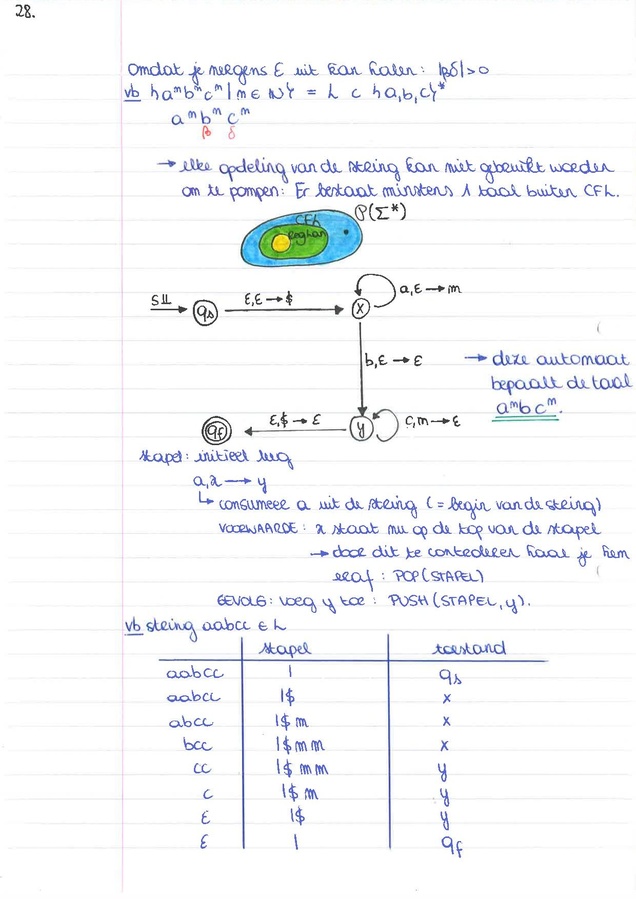 28.
Omdat je nergens ε uit kan halen: |βδ|>0
vb {aⁿbⁿcⁿ | n ∈ ℕ} = L ⊂ {a,b,c}*
aⁿbⁿcⁿ
β δ
→ elke opdeling van de string kan niet gebruikt worden
om te pompen: Er bestaat minstens 1 taal buiten CFL.
P(Σ*)
CFL
reglan
S⊥⊥ qs ε,ε → $ x a,ε → m
b,ε → ε
→ deze automaat
bepaalt de taal
aⁿbcⁿ.
qf ε,$ → ε y c,m → ε
stapel: initieel leeg
a,x → y
↳ consumeer a uit de string (= begin van de string)
VOORWAARDE: x staat nu op de top van de stapel
→ door dit te controleren haal je hem
eraf: POP(STAPEL)
GEVOLG: voeg y toe: PUSH(STAPEL,y).
vb string aabcc ∈ L
stapel toestand
aabcc | qs
aabcc |$ x
abcc |$m x
bcc |$mm x
cc |$mm y
c |$m y
ε |$ y
ε | qf